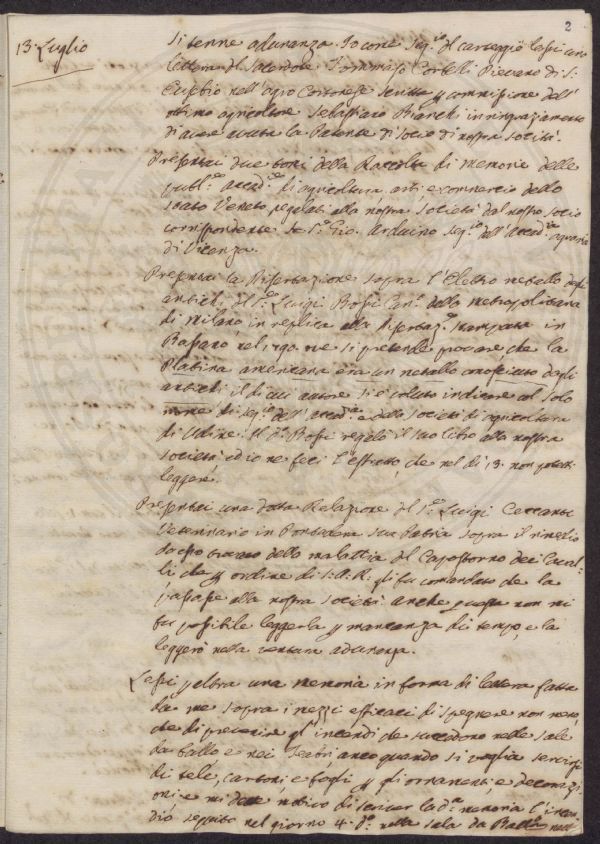 2
13. Luglio
Si tenne adunanza. Io come Seg.° del carteggio lessi una
lettera del Sacerdote Tommaso Corbelli Pievano di S.
Eusebio nell'agro Cortonese scritta p commissione dell'
ottimo agricoltore Sebastiano Bianchi in ringraziamento
di avere avuta la Patente di Socio di nostra Società.
Presentai due tomi della Raccolta di memorie delle
pubb.e Accad.e di agricoltura, arti, e commercio dello
stato Veneto regalati alla nostra Società dal nostro socio
corrispondente Sr. Gio. Arduino Seg.rio dell'Accad.ia agraria
di Vicenza.
Presentai la Dissertazione sopra l'Elettro metallo degli
antichi del Sr. Luigi Bossi Can.co della metropolitana
di Milano in replica alla dissertaz.e stampata in
Bassano nel 1790. ove si pretende provare, che la
Platina americana era un metallo conosciuto dagli
antichi il di cui autore si è voluto indicare col solo
nome di Seg.rio dell'Accad.ia e della Società di agricoltura
di Udine. Il Sr. Bossi regalò il suo libro alla nostra
società ed io ne feci l'estratto, che nel dì 13. non potetti
leggere.
Presentai una dotta Relazione del Sr. Luigi Ceccanti
Veterinario in Pontedera sua Patria sopra il rimedio
da esso trovato della malattia del Capostorno dei Caval=
li che p ordine di S.A.R. gli fu comandato che la
passasse alla nostra società. Anche questa non mi
fu possibile leggerla p mancanza di tempo, e la
leggerò nella ventura adunanza.
Lessi peltra una memoria in forma di lettera fatta
da me sopra i mezzi efficaci di spegnere non meno,
che di prevenire gl'incendi che succedono nelle sale
da ballo e nei Teatri, anco quando si voglia servirsi
di tele, cartoni e fogli p gli ornamenti, e decorazi
oni e mi dette motivo di scriver la d.a memoria l'incen
dio seguito nel giorno 4. d.o nella sala da Ballo